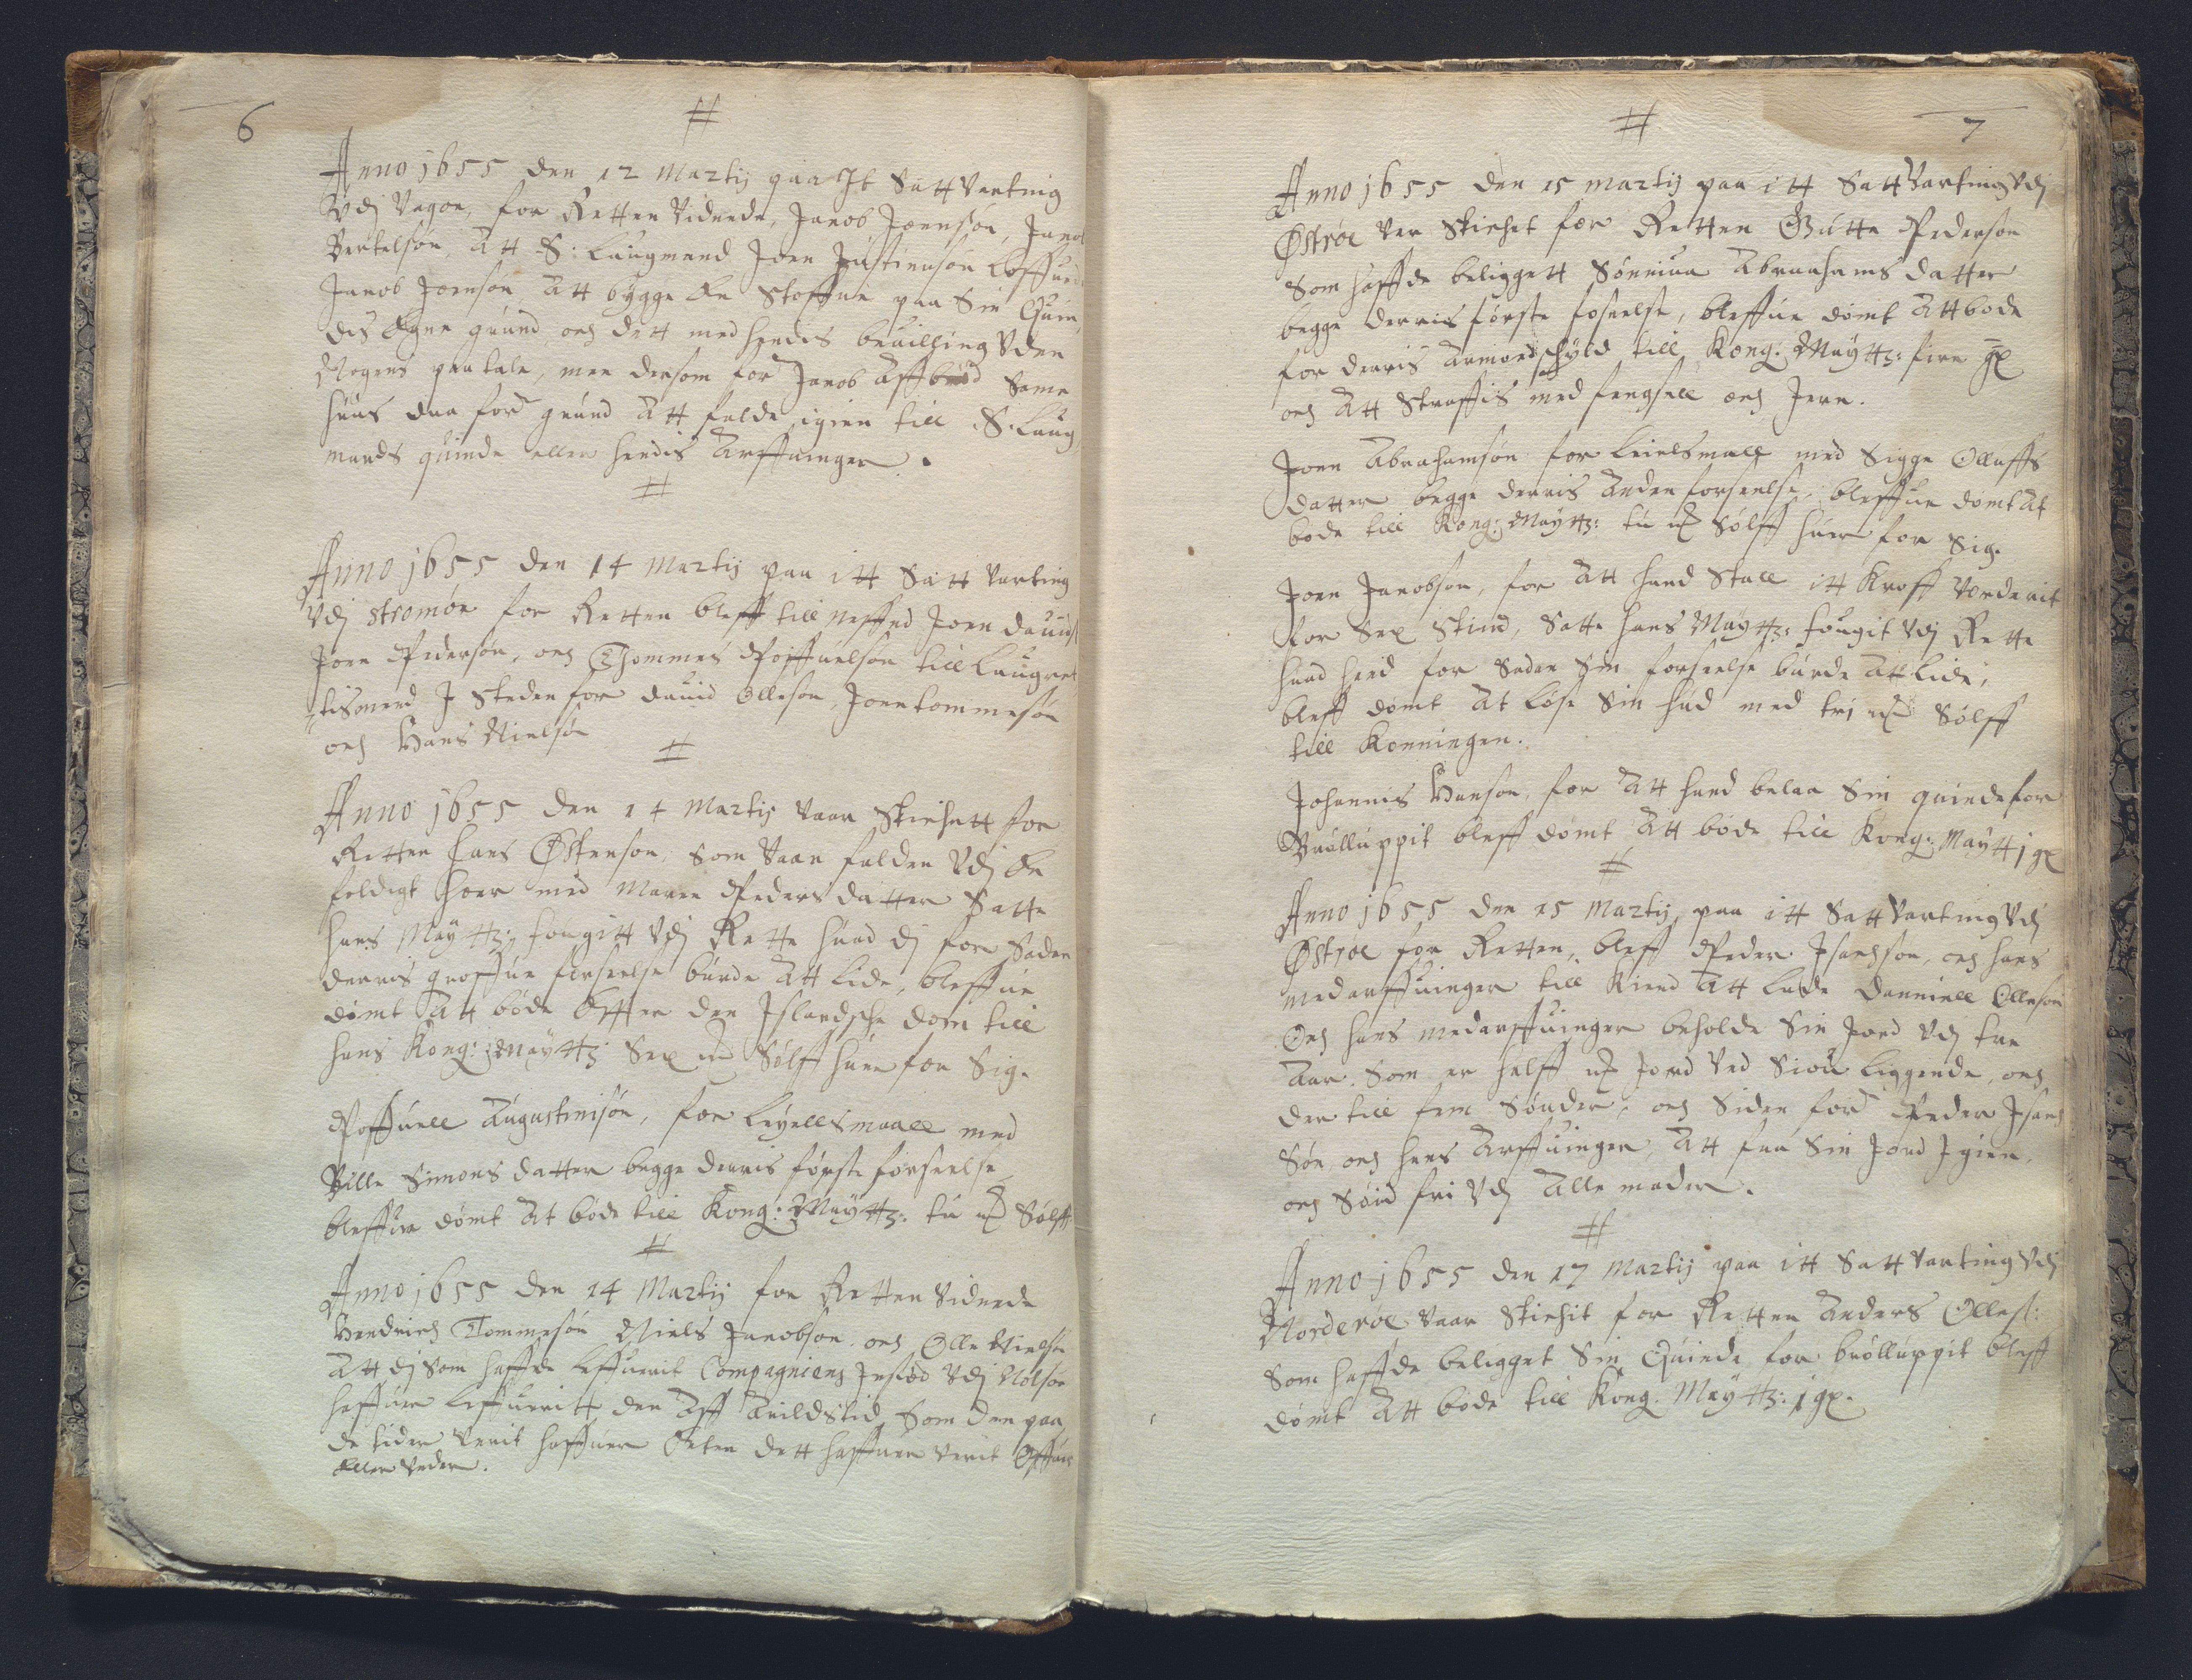 6
#
Anno 1655 den 12 Martij paa It Satt Varting
Vdj Vagøe, for Retten Vidnede, Jacob Joensøn, Jacob
Bertelsøn, Att S: Laugmand Joen Justinusøn loffuede
Jacob Joensøn Att bygge En Stoffue paa Sin Quin
dis Egne grund och dett med hendis beuilling Vden
Nogens paatale, men dersom for Jacob Aff bød Same
huus daa ford grund Att falde igien till S: Laug
mands quinde eller hendis Arffuinger.
#
Anno 1655 den 14 Martij paa itt Satt Varting
Vdj Strømøe for Retten bleff till neffnd Joen Dauids
Joen Pedersøn, och Thommes Poffuelsøn till Laugret
tismend J Steden for Dauid Ollesøn, Joen Tommesøn
och Hans Nielsøn
#
Anno 1655 den 14 Martij Vaar Skichett for
Retten Hans Østensøn, Som Vaar falden Vdj En
foldigt Hoer med Maren Peders datter Satte
hans Maytts: fougitt Vdj Rette huad dj for Saden
derris groffue forseelse burde Att lide, bleffue
dømt Att bøde Effter den Islandsche dom till
hans Kong: Maytts: Sex mk Sølff huer for Sig.
Poffuell Augustinisøn, for Leyellsmaall med
Bille Simons datter begge derris første forseelse
bleffue dømt At bøde till Kong: Maytts: tu mk Sølff
#
Anno 1655 den 14 Martij for Retten Vidnede
Hendrich Tommesøn Niels Jacobsøn och Olle Nielsøn
Att dj Som haffde leffuerit Compagniens Jnsiød Vdj Nolsøe
haffuer leffueritt den Aff Arildstid Som den paa
de tider Verit haffuer Enten dett haffuer Verit Offuer
Eller Vnder.
#
7
Anno 1655 den 15 Martij paa itt Satt Varting Vdj
Østrøe Var Skichet for Retten Gutte Pedersøn
Som haffde beliggett Sønniua Abrahams datter
begge derris første foseelse, bleffue dømt Att bøde
for derris Armods schyld till Kong: Maytts: fire gl
och Att Straffis med fengsell och Jern.
Joen Abrahamsøn for Leielsmall med Sigge Olluffs
datter begge derris Anden forseelse, bleffue dømt At
bøde till Kong: Maytts: tu mk Sølff huer for Sig.
Joen Jacobsøn, for Att hand Stall itt Kroff Vorderit
for Sex Skind, Satte hans Maytts: fougit Vdj Rette
huad hand for Saden Sin forseelse burde Att lide,
bleff dømt At løse Sin hud med trj mk Sølff
till Konningen.
Johannis Hansøn, for Att hand belaa Sin quinde for
Brølluppit bleff dømt Att bøde till Kong: Maytt 1 gl
#
Anno 1655 den 15 Martij paa itt Satt Varting Vdj
Østrøe for Retten, bleff Peder Isachsøn, och hans
medarffuinger till Kiend Att lade Danniell Ollesøn
Och hans medarffuinger beholde Sin Jord Vdj tre
Aar. Som er halff mk Jord Ved Siou liggende, och
der till fem Sønder, och Siden ford Peder Isach
Søn och hans Arffuinger, Att faa Sin Jord Igien,
och Søid fri Vdj Alle mader.
#
Anno 1655 den 17 Martij paa itt Satt Varting Vdj
Norderøe Vaar Skichit for Retten Anders Olles:
Som haffde beligget Sin Quinde for brølluppit bleff
dømt Att bøde till Kong. Maytts: 1 gl.